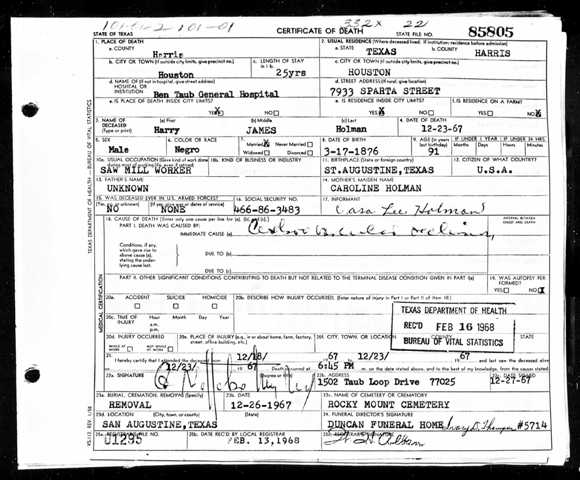 332X 22
STATE OF TEXAS CERTIFICATE OF DEATH STATE FILE NO. 85805
1. PLACE OF DEATH
a. COUNTY Harris
2. USUAL RESIDENCE (Where deceased lived. If institution: residence before admission)
a. STATE TEXAS b. COUNTY HARRIS
b. CITY OR TOWN (If outside city limits, give precinct no.) Houston
c. LENGTH OF STAY in 1 b. 25yrs
c. CITY OR TOWN (If outside city limits, give precinct no.) HOUSTON
d. NAME OF (If not in hospital, give street address) HOSPITAL OR INSTITUTION Ben Taub General Hospital
d. STREET ADDRESS (If rural, give location) 7933 SPARTA STREET
e. IS PLACE OF DEATH INSIDE CITY LIMITS? YES X NO
e. IS RESIDENCE INSIDE CITY LIMITS? YES X NO
f. IS RESIDENCE ON A FARM? YES NO X
3. NAME OF DECEASED (Type or print) (a) First Harry (b) Middle JAMES (c) Last Holman
4. DATE OF DEATH 12-23-67
5. SEX Male
6. COLOR OR RACE Negro
7. Married X Never Married Widowed Divorced
8. DATE OF BIRTH 3-17-1876
9. AGE (In years last birthday) 91
IF UNDER 1 YEAR Months Days
IF UNDER 24 HRS. Hours Min.
10a. USUAL OCCUPATION (Give kind of work done during most of working life, even if retired) SAW MILL WORKER
10b. KIND OF BUSINESS OR INDUSTRY
11. BIRTHPLACE (State or foreign country) ST.AUGUSTINE,TEXAS
12. CITIZEN OF WHAT COUNTRY? U.S.A.
13. FATHER'S NAME UNKNOWN
14. MOTHER'S MAIDEN NAME CAROLINE HOLMAN
15. WAS DECEASED EVER IN U.S. ARMED FORCES? NO NONE
16. SOCIAL SECURITY NO. 466-86-3483
17. INFORMANT Lee Holman
18. CAUSE OF DEATH (Enter only one cause per line for (a), (b), and (c).)
PART I. DEATH WAS CAUSED BY:
IMMEDIATE CAUSE (a)
INTERVAL BETWEEN ONSET AND DEATH
Conditions, if any, which gave rise to above cause (a), stating the underlying cause last.
DUE TO (b)
DUE TO (c)
PART II. OTHER SIGNIFICANT CONDITIONS CONTRIBUTING TO DEATH BUT NOT RELATED TO THE TERMINAL DISEASE CONDITION GIVEN IN PART I(a)
19. WAS AUTOPSY PERFORMED? YES NO X
20a. ACCIDENT SUICIDE HOMICIDE
20b. DESCRIBE HOW INJURY OCCURRED. (Enter nature of injury in Part I or Part II of item 18)
20c. TIME OF INJURY Hour a.m. p.m. Month Day Year
TEXAS DEPARTMENT OF HEALTH
REC'D FEB 16 1968
BUREAU OF VITAL STATISTICS
20d. INJURY OCCURRED WHILE AT WORK NOT WHILE AT WORK
20e. PLACE OF INJURY (e.g., in or about home, farm, factory, street, office building, etc.)
20f. CITY, TOWN, OR LOCATION COUNTY STATE
21. I hereby certify that I attended the deceased from 12/18/ 67 to 12/23/ 67 and last saw the deceased alive
on 12/23/ 67 Death occurred at 6:45 PM m. on the date stated above, and to the best of my knowledge, from the causes stated.
22a. SIGNATURE (Degree or title)
22b. ADDRESS 1502 Taub Loop Drive 77025
22c. DATE SIGNED 12-27-67
23a. BURIAL, CREMATION, REMOVAL (Specify) REMOVAL
23b. DATE 12-26-1967
23c. NAME OF CEMETERY OR CREMATORY ROCKY MOUNT CEMETERY
23d. LOCATION (City, town, or county) (State) SAN AUGUSTINE,TEXAS
24. FUNERAL DIRECTOR'S SIGNATURE DUNCAN FUNERAL HOME #5714
25a. REGISTRAR'S FILE NO. 01295
25b. DATE REC'D BY LOCAL REGISTRAR FEB. 13,1968
25c. REGISTRAR'S SIGNATURE
TEXAS DEPARTMENT OF HEALTH — BUREAU OF VITAL STATISTICS
MEDICAL CERTIFICATION